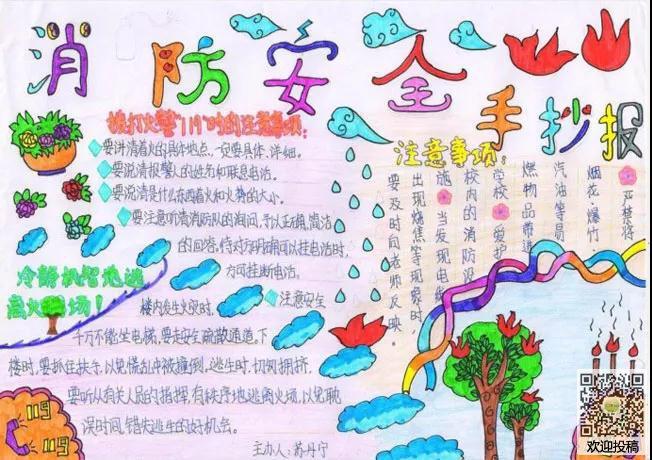 消防安全手抄报
拨打火警"119"时的注意事项:
要讲清着火的具体地点,一定要具体、详细。
要说清报警人的姓名和联系电话。
要说清是什么东西着火和火势的大小。
要注意听清消防队的询问,予以正确,简洁
的回答,待对方明确可以挂电话时,
方可挂断电话。
冷静机智地逃
离火场!
注意安全
楼内发生火灾时,
千万不能坐电梯,要走安全疏散通道。下
楼时,要抓住扶手,以免慌乱中被撞倒。逃生时,切勿拥挤,
要听从有关人员的指挥,有秩序地逃离火场,以免耽
误时间,错失逃生的好机会。
主办人:苏丹宁
注意事项:
严禁将
烟花、爆竹
汽油等易
燃物品带进
学校。爱护
校内的消防设
施。当发现电
出现烧焦等现象时,
要及时向老师反映。
119
119
欢迎投稿